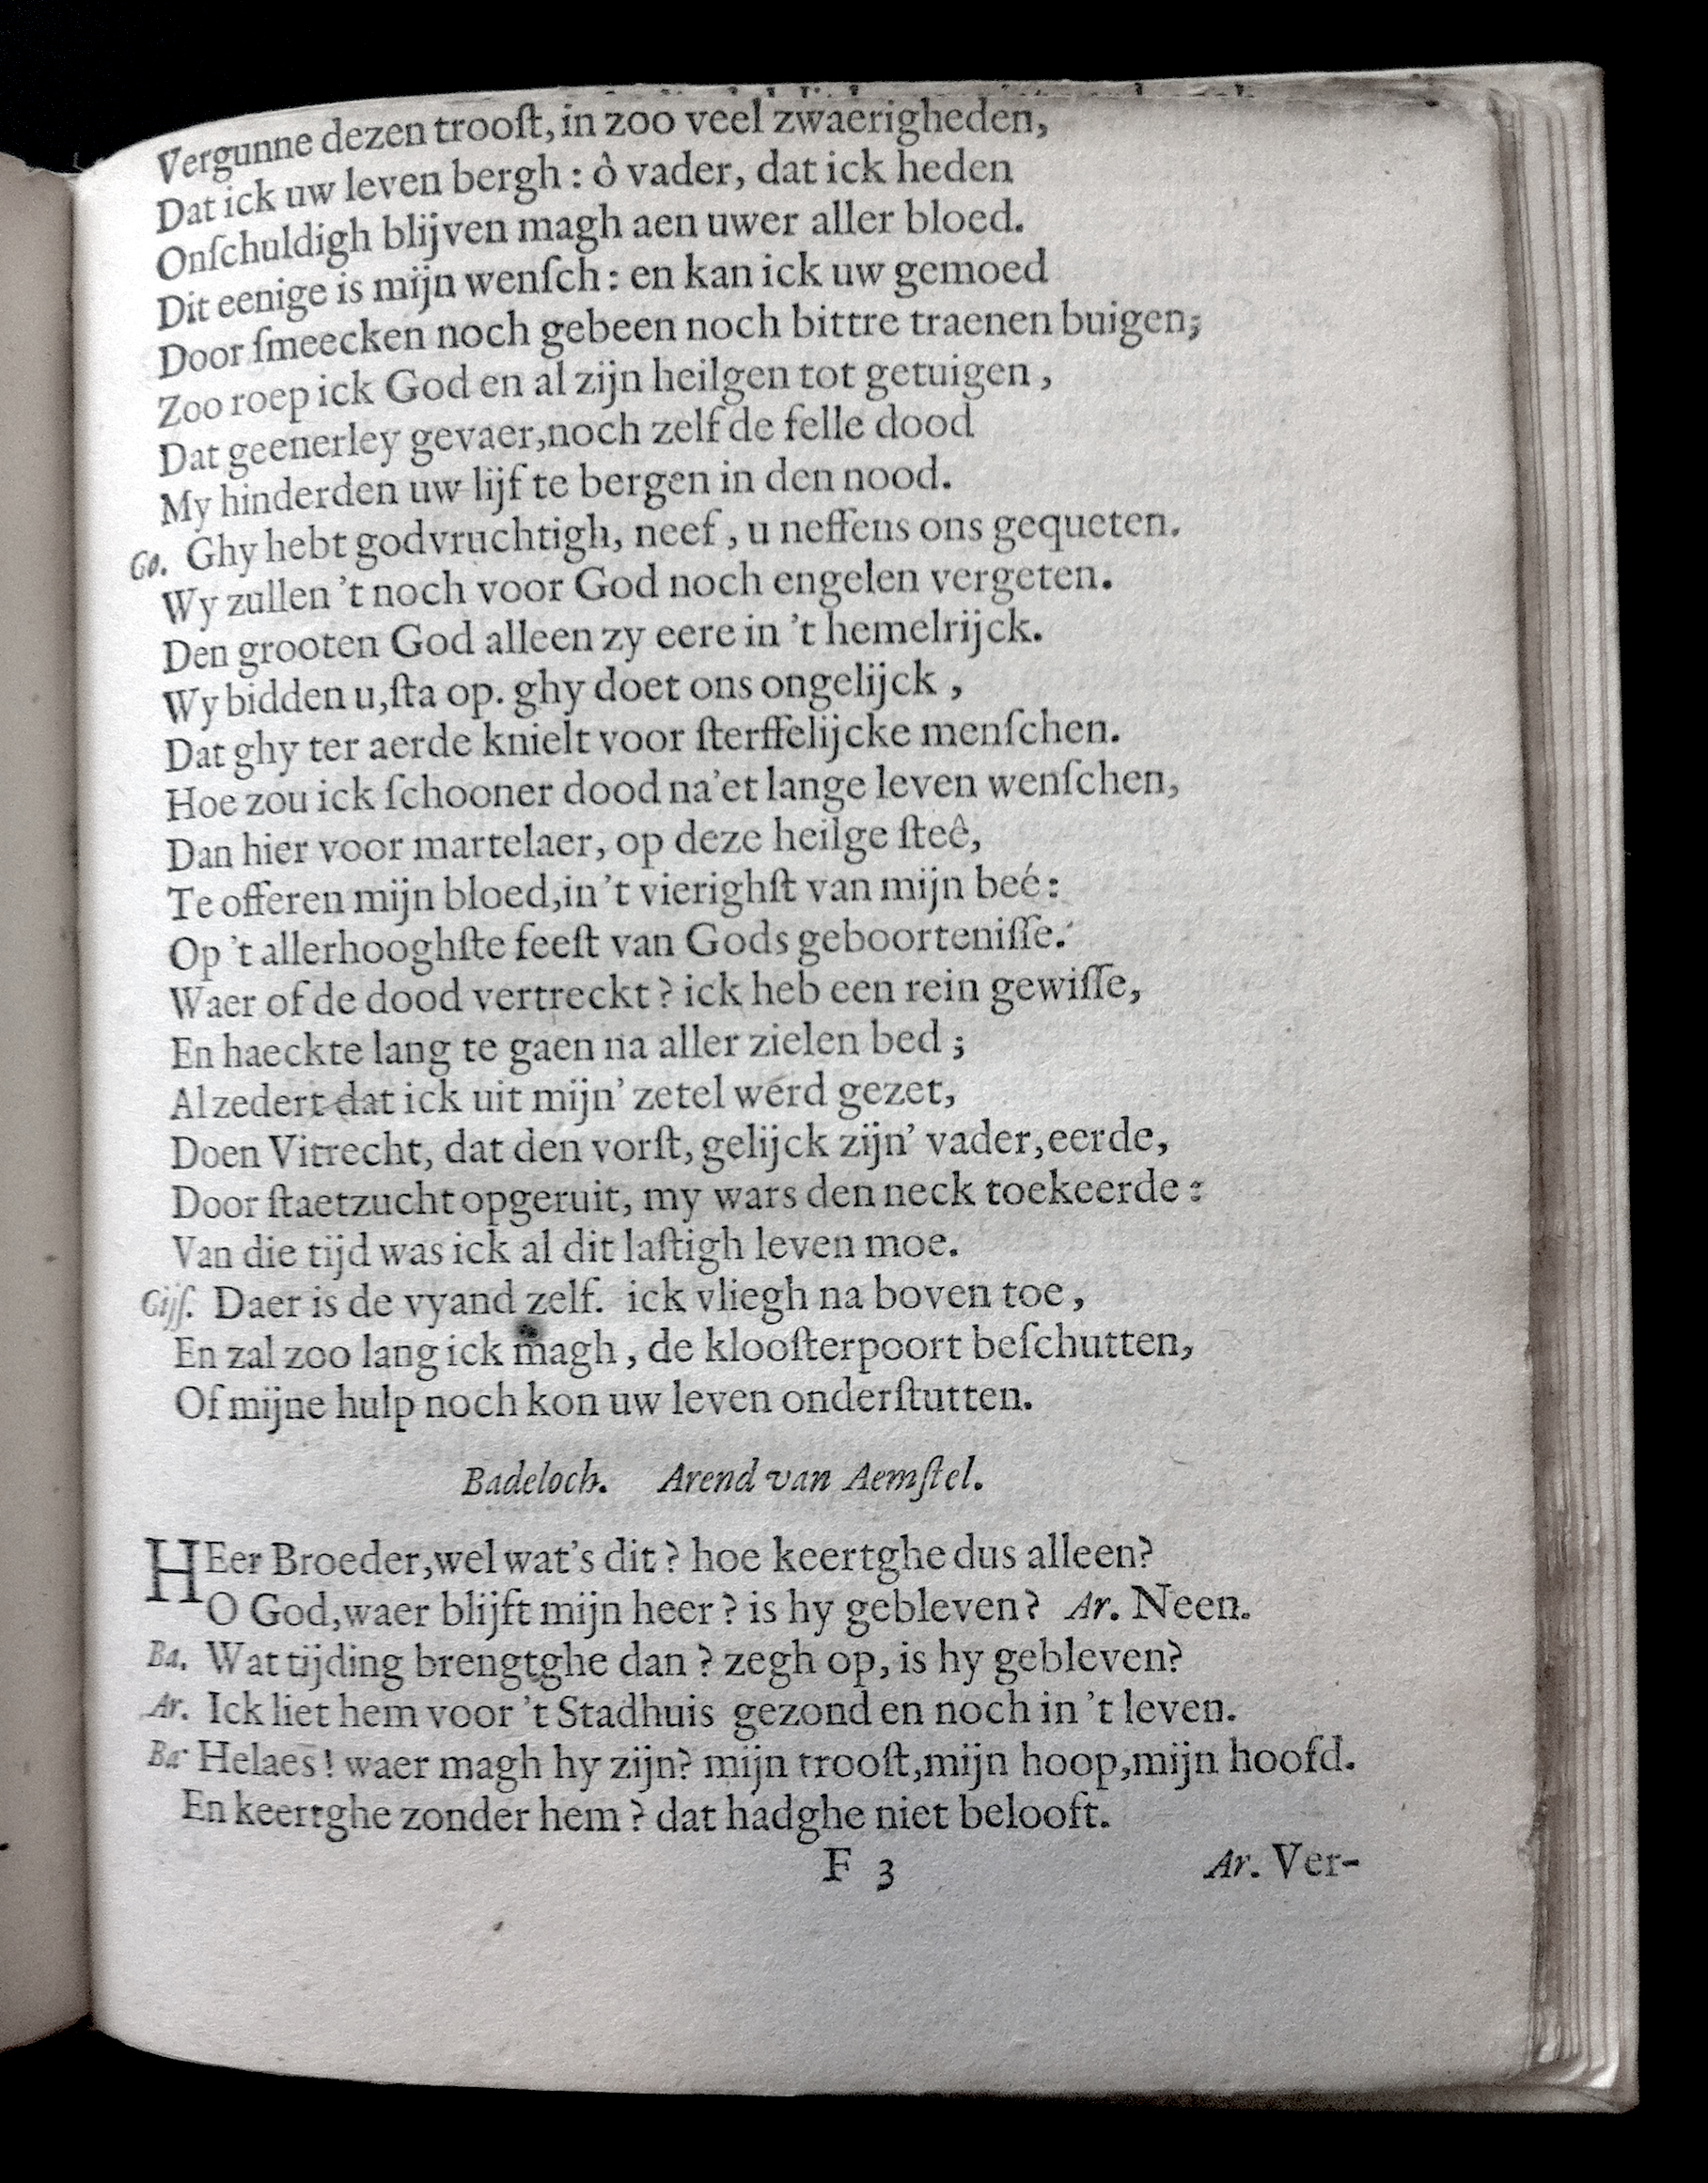 Vergunne dezen trooſt, in zoo veel zwaerigheden,
Dat ick uw leven bergh : ô vader, dat ick heden
Onſchuldigh blijven magh aen uwer aller bloed.
Dit eenige is mijn wenſch : en kan ick uw gemoed
Door ſmeecken noch gebeen noch bittre traenen buigen;
Zoo roep ick God en al zijn heilgen tot getuigen ,
Dat geenerley gevaer,noch zelf de felle dood
My hinderden uw lijf te bergen in den nood.
Go. Ghy hebt godvruchtigh, neef , u neffens ons gequeten.
Wy zullen 't noch voor God noch engelen vergeten.
Den grooten God alleen zy eere in 't hemelrijck.
Wy bidden u,ſta op. ghy doet ons ongelijck ,
Dat ghy ter aerde knielt voor ſterffelijcke menſchen.
Hoe zou ick ſchooner dood na'et lange leven wenſchen,
Dan hier voor martelaer, op deze heilge ſteê,
Te offeren mijn bloed,in 't vierighſt van mijn beé:
Op 't allerhooghſte feeſt van Gods geboorteniſſe.
Waer of de dood vertreckt ? ick heb een rein gewiſſe,
En haeckte lang te gaen na aller zielen bed ;
Al zedert dat ick uit mijn' zetel werd gezet,
Doen Vitrecht, dat den vorſt, gelijck zijn' vader,eerde,
Door ſtaetzucht opgeruit, my wars den neck toekeerde :
Van die tijd was ick al dit laſtigh leven moe.
Gijſ. Daer is de vyand zelf. ick vliegh na boven toe ,
En zal zoo lang ick magh , de klooſterpoort beſchutten,
Of mijne hulp noch kon uw leven onderſtutten.
Badeloch. Arend van Aemſtel.
HEer Broeder,wel wat's dit ? hoe keertghe dus alleen?
O God,waer blijft mijn heer ? is hy gebleven? Ar. Neen.
Ba. Wat tijding brengtghe dan ? zegh op, is hy gebleven?
Ar. Ick liet hem voor 't Stadhuis gezond en noch in 't leven.
Ba. Helaes ! waer magh hy zijn? mijn trooſt,mijn hoop,mijn hoofd.
En keertghe zonder hem ? dat hadghe niet belooft.
F 3 Ar. Ver-